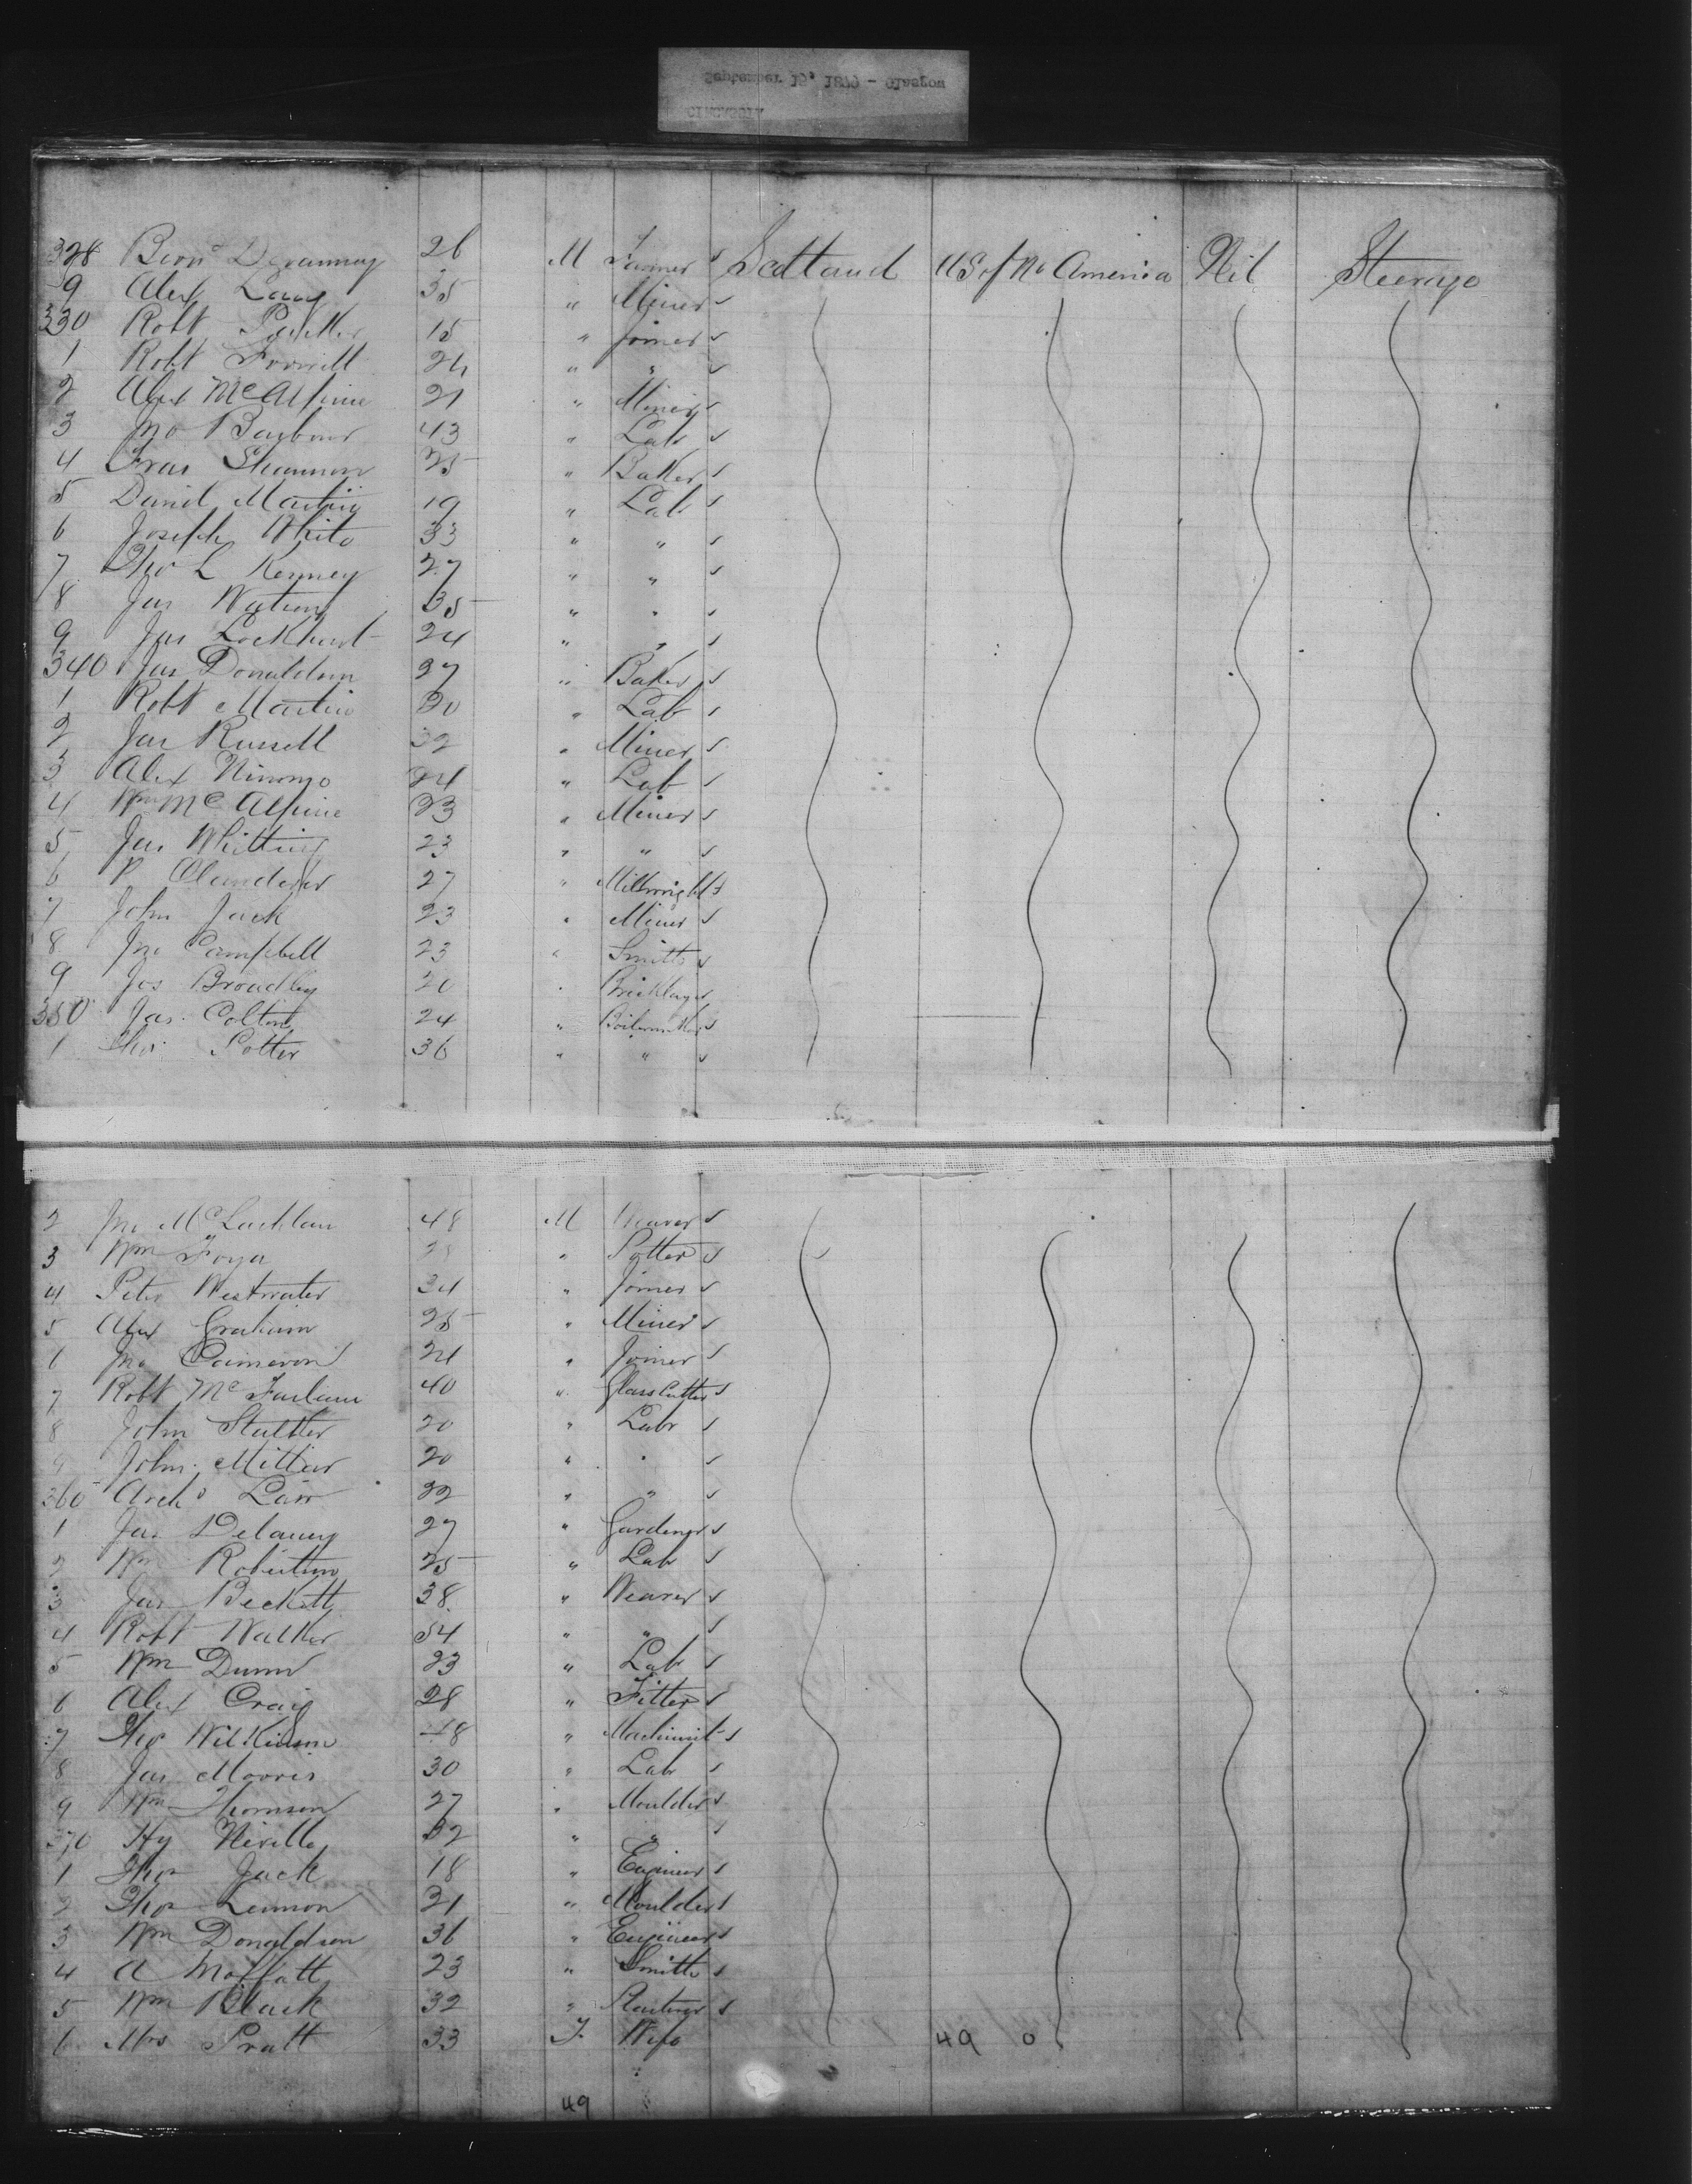 September 19, 1879 - Glasgow
328 M Farmer s Scotland US of No America Nil Steerage 26
9 Alex 35 " Miner s
330 Robt 15 " Joiner s
1 Robt Forrill 24 " " s
2 Alex McAlpine 21 " Miner s
3 Jno Barbour 43 " Lab s
4 Fras Shannon 25 " Baker s
5 Daniel Martin 19 " Lab s
6 Joseph White 33 " " s
7 Tho L Kenney 27 " " s
8 Jas Watson 35 " " s
9 Jas Lockhart 24 " " s
340 Jas Donaldson 27 " Baker s
1 Robt Martin 20 " Lab s
2 Jas Russell 32 " Miner s
3 Alex 24 " Lab s
4 Wm McAlpine 23 " Miner s
5 Jas Whitting 23 " " s
6 27 " Millwright s
7 John Jack 23 " Miner s
8 Jno Campbell 23 " Smith s
9 Jos Broadley 20 " Bricklayer
350 Jas Colton 24 " Boilermaker s
1 Thos Potter 36 " " s
2 Jno McLachlan 48 M Weaver s
3 Wm " Potter s
4 Peter Westwater 34 " Joiner s
5 Alex Graham 25 " Miner s
6 Jno Cameron 24 " Joiner s
7 Robt McFarlane 40 " Glass Cutter s
8 John 20 " Labr s
9 John Millar 20 " " s
360 Archd Law 22 " " s
1 Jas Delaney 27 " Gardener s
2 Wm Robertson 25 " Lab s
3 Jas Beckett 38 " Weaver s
4 Robt Walker 54 " " s
5 Wm Dunn 23 " Lab s
6 Alex Craig 28 " Fitter s
7 Thos Wilkinson 48 " Machinist s
8 Jas Morris 30 " Lab s
9 Wm Thomson 27 " Moulder s
370 Hy Neville 32 " " s
1 Thos Jack 18 " Engineer s
2 Thos Lennon 21 " Moulder s
3 Wm Donaldson 36 " Engineer s
4 A Moffatt 23 " Smith s
5 Wm Black 32 " s
6 Mrs Pratt 33 F Wife 49 0
49